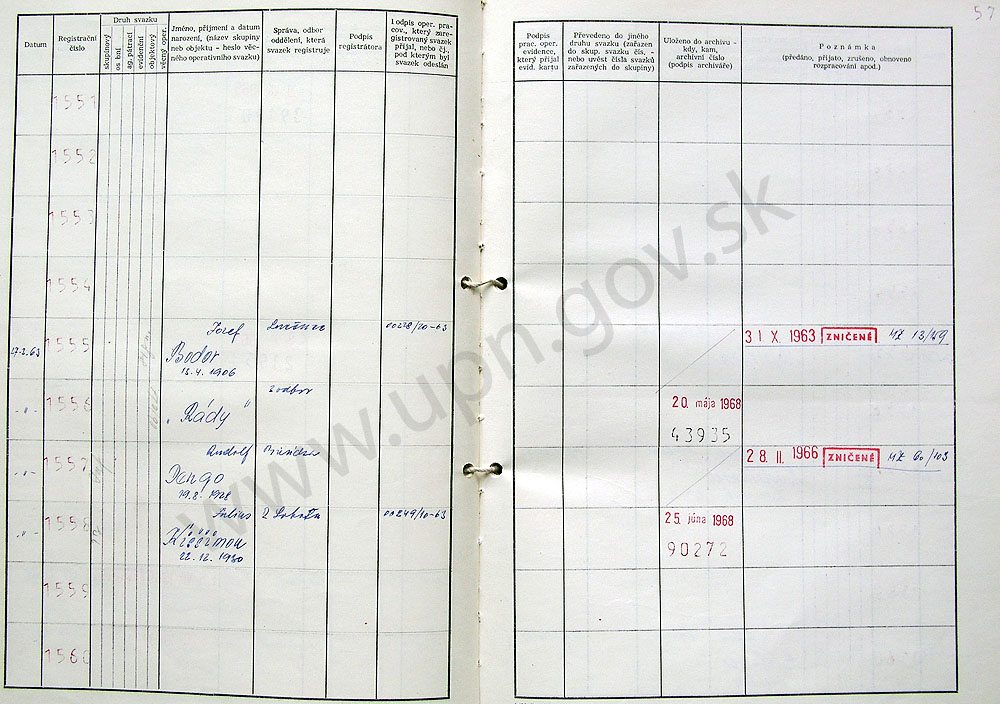 57
Datum
Registrační číslo
Druh svazku
skupinový
osobní
ag. pátrací
evidenční
objektový
věcný oper.
Jméno, příjmení a datum
narození, (název skupiny
neb objektu - heslo věc-
ného operativního svazku)
Správa, odbor
oddělení, která
svazek registruje
Podpis
registrátora
Podpis oper. pra-
cov., který zare-
gistrovaný svazek
přijal, nebo čj.,
pod kterým byl
svazek odeslán
Podpis
prac. oper.
evidence,
který přijal
evid. kartu
Převedeno do jiného
druhu svazku (zařazen
do skup. svazku čís. -
nebo uvést čísla svazků
zařazených do skupiny)
Uloženo do archivu -
kdy, kam,
archivní číslo
(podpis archiváře)
Poznámka
(předáno, přijato, zrušeno, obnoveno
rozpracování apod.)
1551
1552
1553
1554
1555
27.2.63
Jozef
Bodor
13.4.1906
Lučenec
00278/20-63
31 X. 1963 ZNIČENÉ
1556
-"-
"Rády"
2 odbor
20. mája 1968
43935
1557
-"-
Rudolf
19.8.1928
28. II. 1966 ZNIČENÉ
1558
-"-
Július
22.12.1930
R Sobota
00249/10-63
25. júna 1968
90272
1559
1560
www.upn.gov.sk